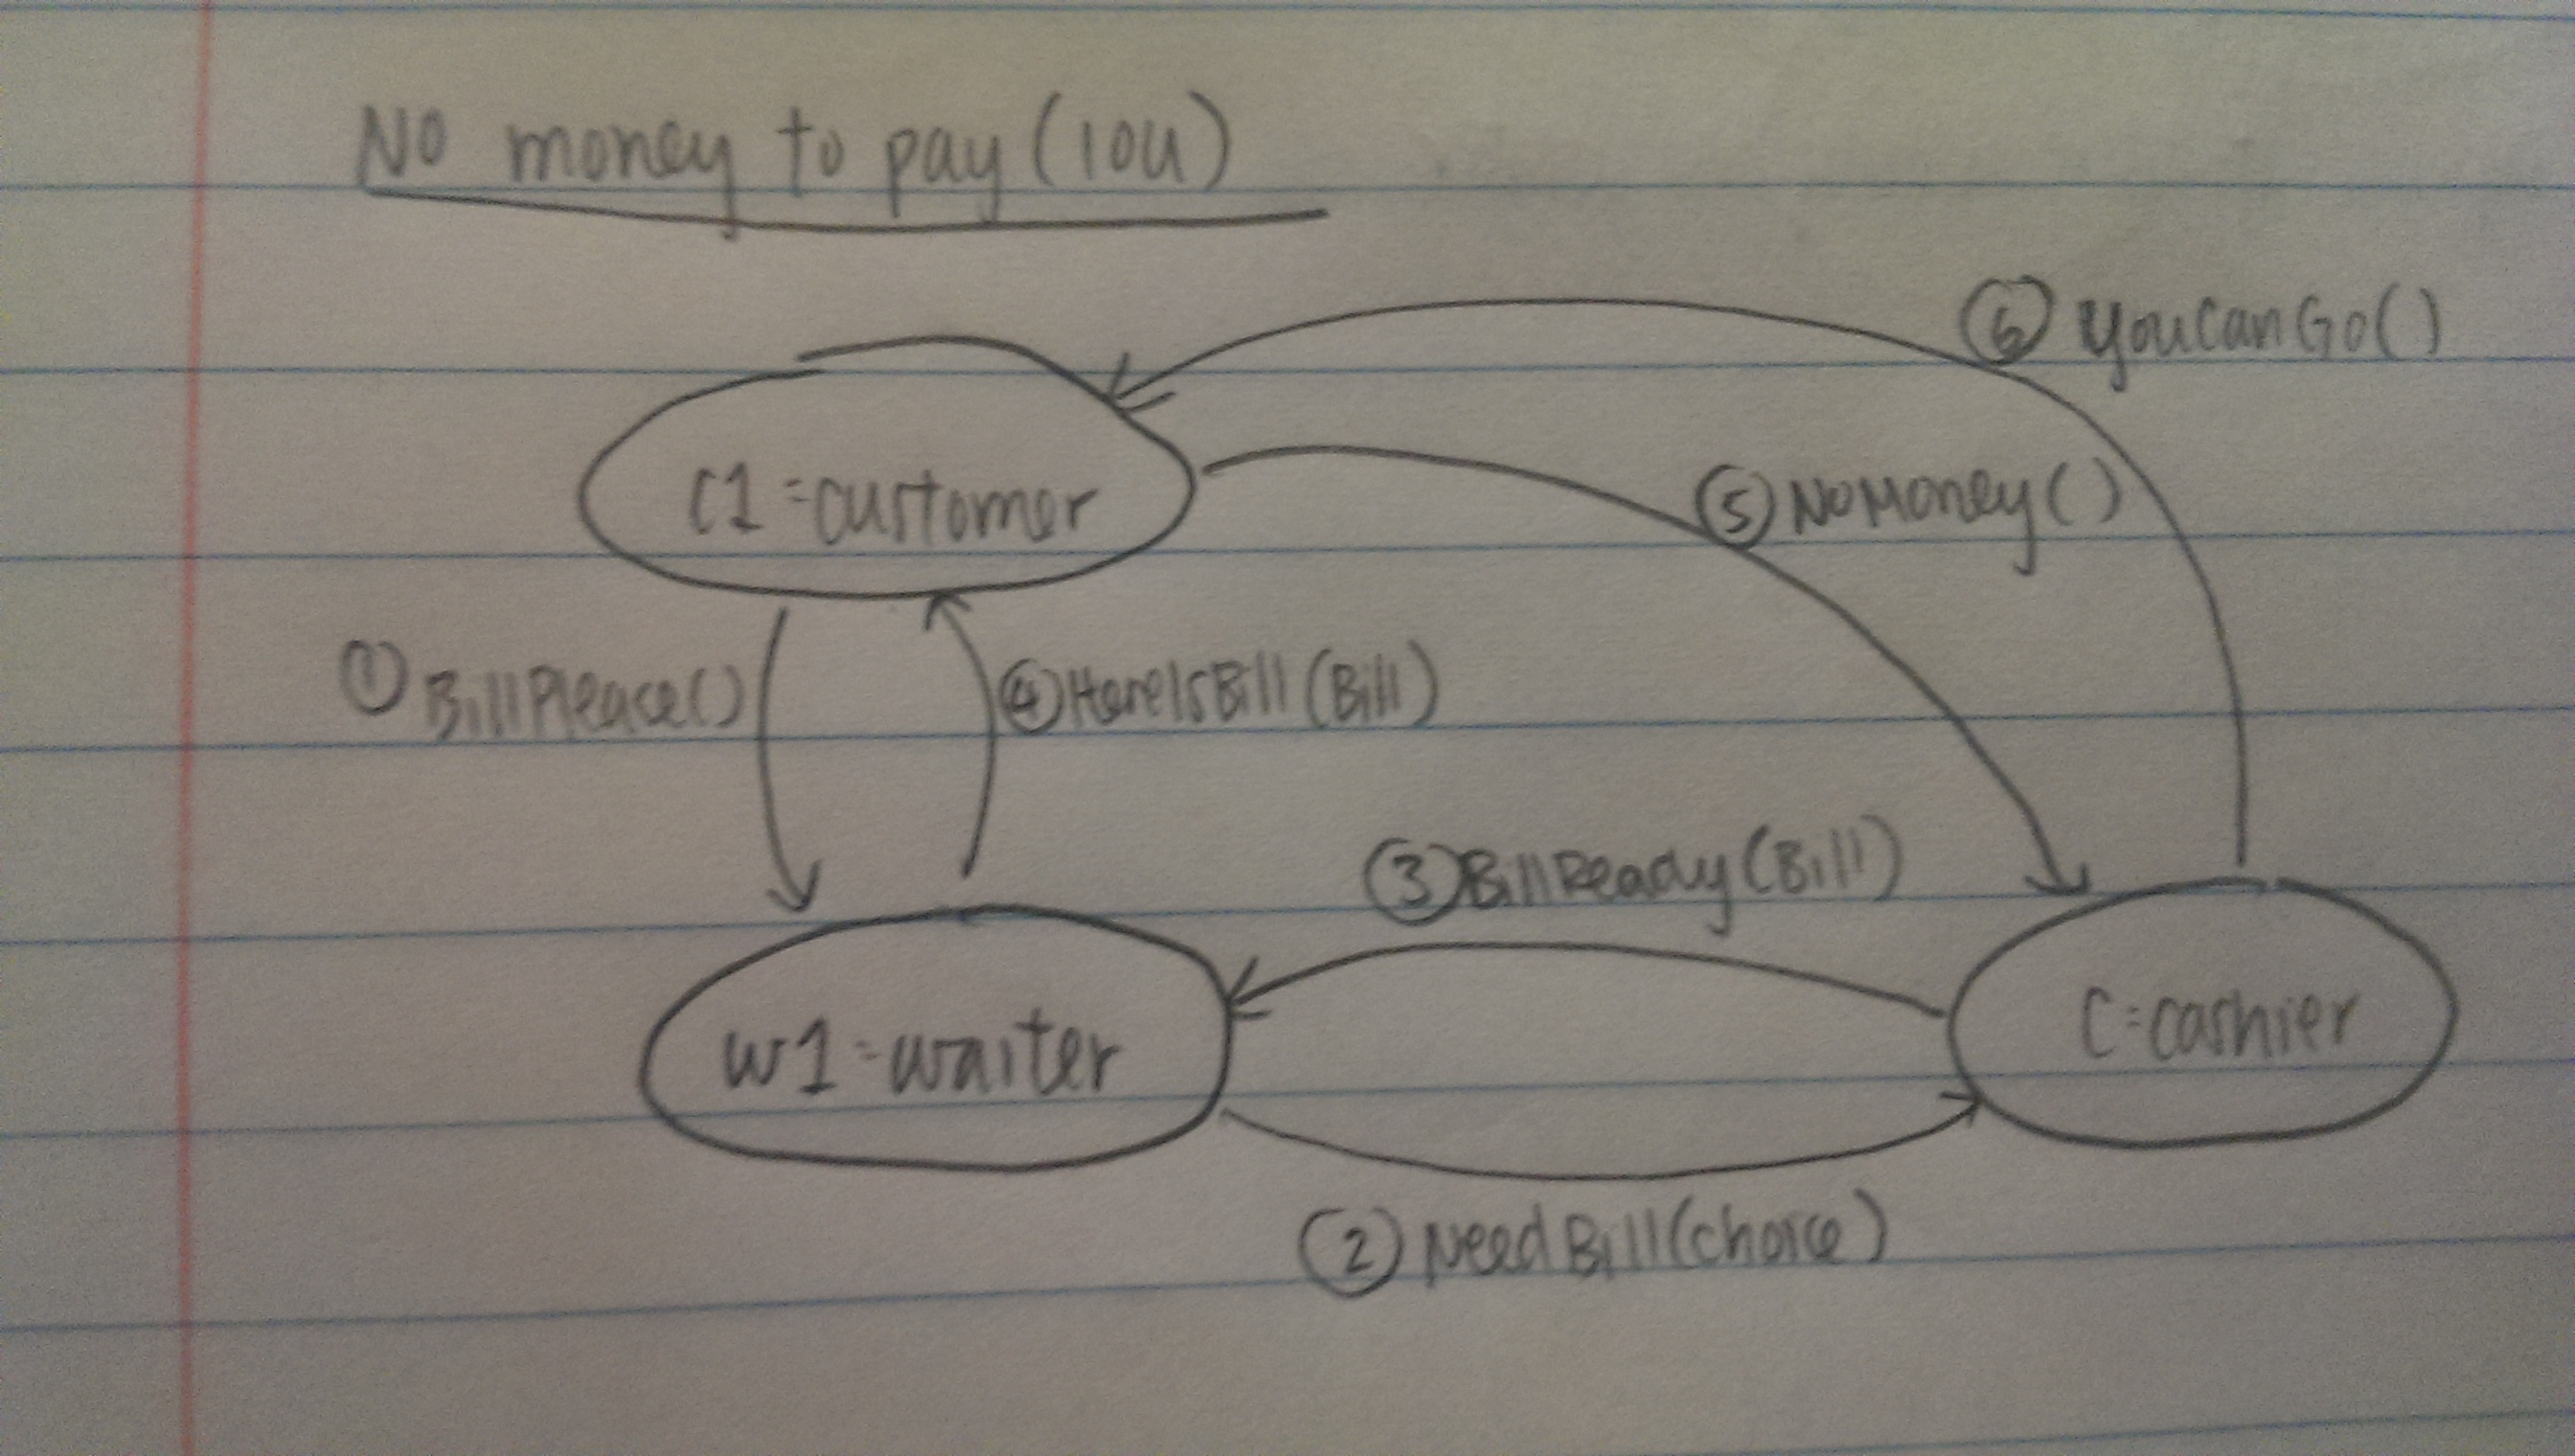 No money to pay (IOU)
⑥ YouCanGo()
c1=customer
⑤ NoMoney()
① BillPlease()
④ HereIsBill (Bill)
③ BillReady (Bill)
w1=waiter
C=cashier
② Need Bill (choice)